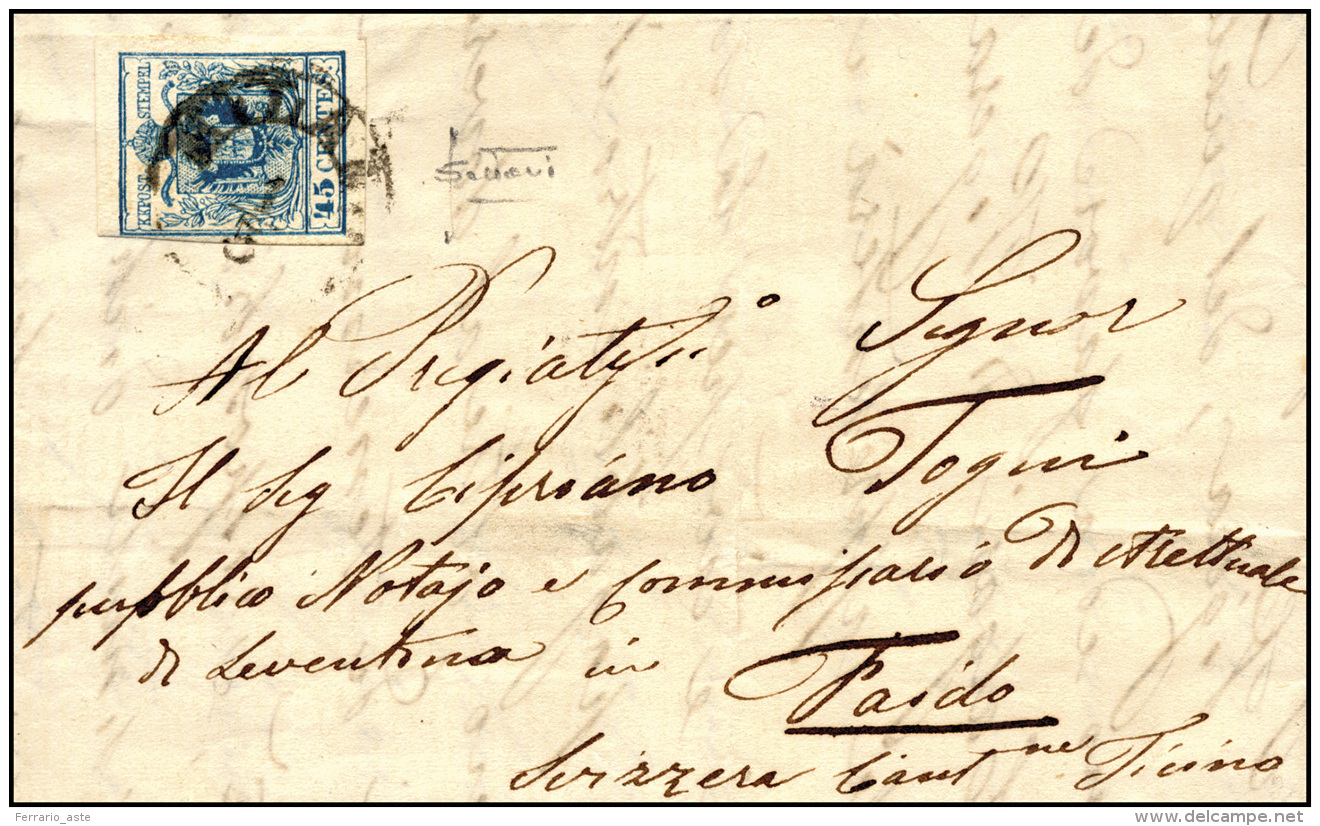 KKPOST-STEMPEL
45 CENTES.
Al Pregiatiss.º Signor
Il Sig Cipriano Togni
pubblico Notajo e Commissario Distrettuale
di Leventina in Faido
Svizzera Cant.ne Ticino
Ferrario_aste
delcampe.net